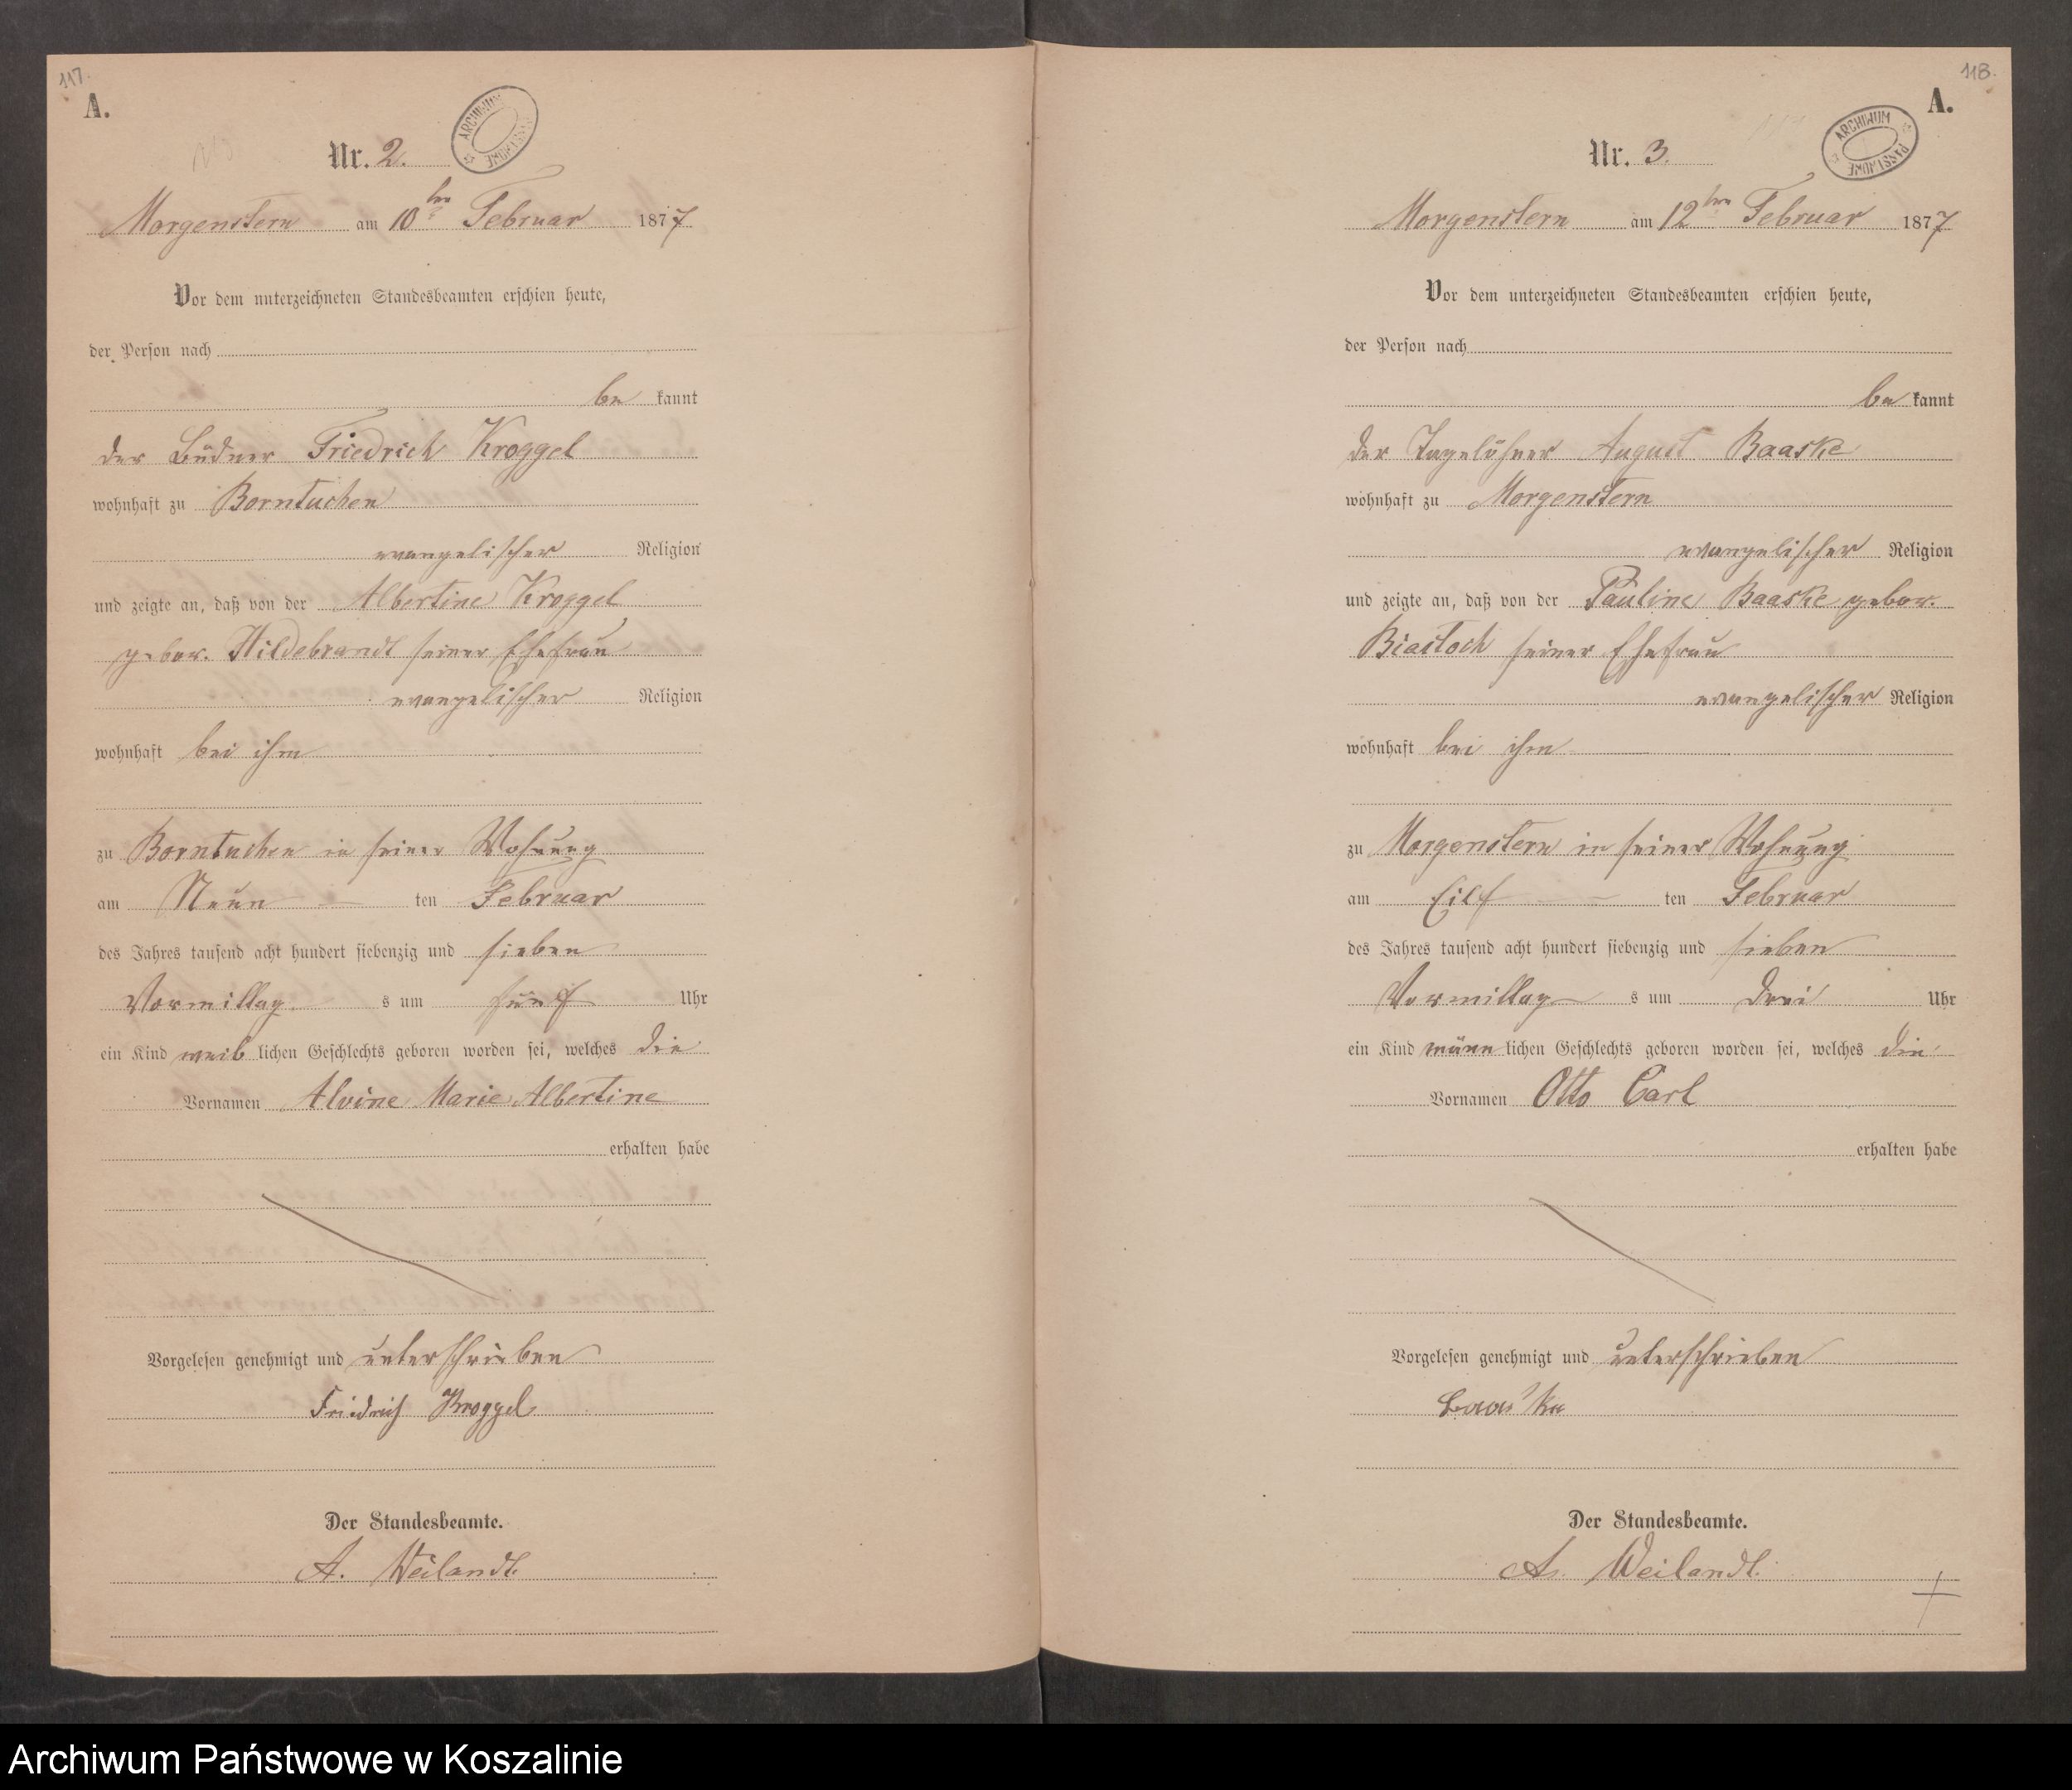 117.
A.
ARCHIWUM PAŃSTWOWE
Nr. 2.
Morgenstern am 10ten Februar 1877
Vor dem unterzeichneten Standesbeamten erschien heute,
der Person nach
be kannt
der Büdner Friedrich Kroggel
wohnhaft zu Borntuchen
evangelischer Religion
und zeigte an, daß von der Albertine Kroggel
gebor. Hildebrandt seiner Ehefrau
evangelischer Religion
wohnhaft bei ihm
zu Borntuchen in seiner Wohnung
am Neun ten Februar
des Jahres tausend acht hundert siebenzig und sieben
Vormittag s um fünf Uhr
ein Kind weib lichen Geschlechts geboren worden sei, welches die
Vornamen Alvine Marie Albertine
erhalten habe
Vorgelesen genehmigt und unterschrieben
Friedrich Kroggel
Der Standesbeamte.
A. Weilandt.
118.
A.
ARCHIWUM PAŃSTWOWE
Nr. 3.
Morgenstern am 12ten Februar 1877
Vor dem unterzeichneten Standesbeamten erschien heute,
der Person nach
be kannt
der Tagelöhner August Baaske
wohnhaft zu Morgenstern
evangelischer Religion
und zeigte an, daß von der Pauline Baaske gebor.
Biastoch seiner Ehefrau
evangelischer Religion
wohnhaft bei ihm
zu Morgenstern in seiner Wohnung
am Eilf ten Februar
des Jahres tausend acht hundert siebenzig und sieben
Vormittag s um drei Uhr
ein Kind männ lichen Geschlechts geboren worden sei, welches die
Vornamen Otto Carl
erhalten habe
Vorgelesen genehmigt und unterschrieben
Baaske
Der Standesbeamte.
A. Weilandt.
Archiwum Państwowe w Koszalinie